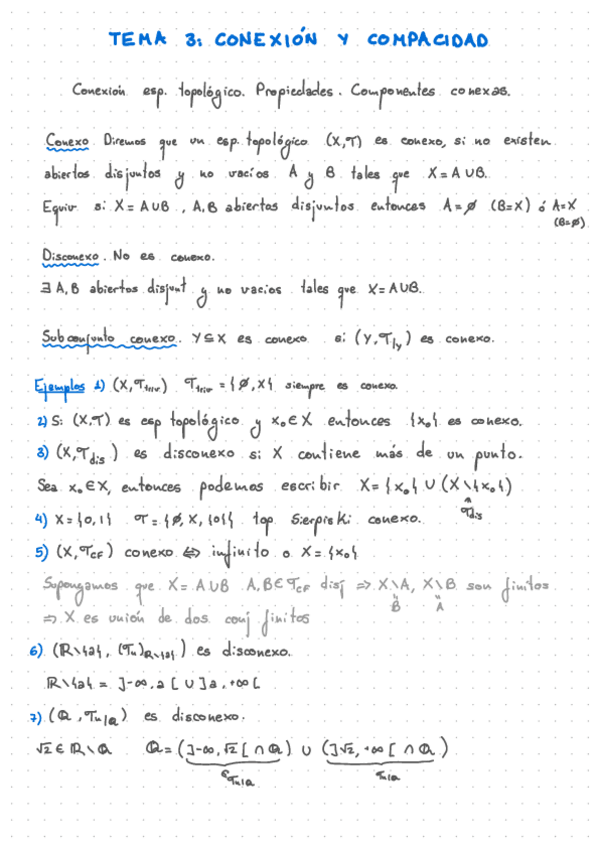 TEMA 3: CONEXIÓN Y COMPACIDAD
Conexión esp. topológico. Propiedades. Componentes conexas.
Conexo Diremos que un esp. topológico (X,T) es conexo, si no existen
abiertos disjuntos y no vacíos A y B tales que X=A∪B.
Equiv si X=A∪B, A,B abiertos disjuntos entonces A=∅ (B=X) ó A=X
(B=∅)
Disconexo. No es conexo.
∃ A,B abiertos disjunt y no vacios tales que X=A∪B.
Subconjunto conexo. Y⊆X es conexo si (Y,T|y) es conexo.
Ejemplos 1) (X,Ttriv) Ttriv={∅,X} siempre es conexo.
2) Si (X,T) es esp topológico y x₀∈X entonces {x₀} es conexo.
3) (X,Tdis) es disconexo si X contiene más de un punto.
Sea x₀∈X, entonces podemos escribir X={x₀}∪(X\{x₀})
Tdis
4) X={0,1} T={∅,X,{0}} top. Sierpiski conexo.
5) (X,TCF) conexo ⇔ infinito o X={x₀}
Supongamos que X=A∪B A,B∈TCF disj ⇒ X\A, X\B son finitos
B A
⇒ X es unión de dos conj finitos
6) (ℝ\{a}, (Tu)ℝ\{a}) es disconexo.
ℝ\{a} = ]-∞,a[ ∪ ]a,+∞[
7) (ℚ,Tu|ℚ) es disconexo.
√2∈ℝ\ℚ ℚ=(]-∞,√2[∩ℚ) ∪ (]√2,+∞[∩ℚ)
∈Tu|ℚ Tu|ℚ